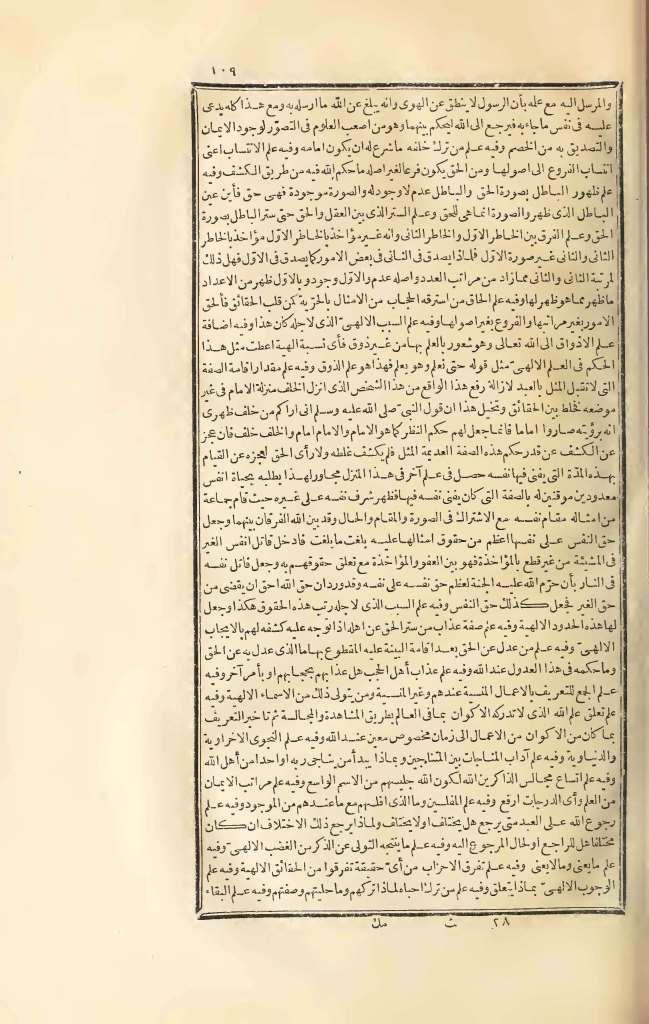 ١٠٩
والمرسل اليه مع علمه بأن الرسول لا ينطق عن الهوى وانه يبلغ عن الله ما ارسله به ومع هذا كله يدعى
عليه فى نفس ما جاء به فيرجع الى الله ليحكم بينهما وهو من أصعب العلوم فى التصوّر لوجود الايمان
والتصديق به من الخصم وفيه علم من ترك خلفه ما شرع له ان يكون امامه وفيه علم الانتساب اعنى
انتساب الفروع الى اصولها ومن الحق يكون فرعا لغير اصله ما حكم الله فيه من طريق الكشف وفيه
علم ظهور الباطل بصورة الحق والباطل عدم لا وجود له والصورة موجودة فهى حق فأين عين
الباطل الذى ظهر والصورة انما هى للحق وعلم الستر الذى بين العقل والحق حتى ستر الباطل بصورة
الحق وعلم الفرق بين الخاطر الاول والخاطر الثانى وانه غير مؤاخذ بالخاطر الاول مؤاخذ بالخاطر
الثانى والثانى غير صورة الاول فلماذا يصدق فى الثانى فى بعض الامور كما يصدق فى الاول فهل ذلك
لمرتبة الثانى والثانى مما زاد من مراتب العدد واصله عدم والاول وجود وبالاول ظهر من الاعداد
ما ظهر مما هو ظهر لها وفيه علم الحاق من استرقه الحجاب من الامثال بالحرّية كمن قلب الحقائق فألحق
الامور بغير مراتبها والفروع بغير اصولها وفيه علم السبب الالهىّ الذى لاجله كان هذا وفيه اضافة
علم الاذواق الى الله تعالى وهو شعور بالعلم بها من غير ذوق فأى نسبة الهية اعطت مثل هذا
الحكم فى العلم الالهىّ مثل قوله حتى نعلم وهو يعلم فهذا هو علم الذوق وفيه علم مقدار اقامة الصفة
التى لا تقبل المثل بالعبد لازالة رفع هذا الواقع من هذا الشخص الذى انزل الخلف منزلة الامام فى غير
موضعه فخلط بين الحقائق وتخيل هذا ان قول النبىّ صلى الله عليه وسلم انى اراكم من خلف ظهرى
انه برؤيته صاروا اماما فانما جعل لهم حكم النظر كما هو الامام والامام امام والخلف خلف فان عجز
عن الكشف عن قدر حكم هذه الصفة العديمة المثل فلم يكشف غلطه ولا رأى الحق لعجزه عن القيام
بهذه المدّة التى يفنى فيها نفسه حصل فى علم آخر فى هذا المنزل مجاور لهذا يطلبه بحياة انفس
معدودين موقنين له بالصفة التى كان يفنى نفسه فيها فظهر شرف نفسه على غيره حيث قام جماعة
من امثاله مقام نفسه مع الاشتراك فى الصورة والمقام والحال وقد بين الله الفرقان بينهما وجعل
حق النفس على نفسها اعظم من حقوق امثالها عليه بلغت ما بلغت فادخل قاتل انفس الغير
فى المشيئة من غير قطع بالمؤاخذة فهو بين العفو والمؤاخذة مع تعلق حقوقهم به وجعل قاتل نفسه
فى النار بأن حرّم الله عليه الجنة لعظم حق نفسه على نفسه وقد ورد ان حق الله احق ان يقضى من
حق الغير فجعل كذلك حق النفس وفيه علم السبب الذى لاجله رتب هذه الحقوق هكذا وجعل
لها هذه الحدود الالهية وفيه علم صفة عذاب من ستر الحق عن اهله اذا توجه عليه كشفه لهم بالايجاب
الالهىّ وفيه علم من عدل عن الحق بعد اقامة البينة عليه المقطوع بها ما الذى عدل به عن الحق
وما حكمه فى هذا العدول عند الله وفيه علم عذاب أهل الحجب هل عذابهم بحجابهم او بأمر آخر وفيه
علم الجمع للتعريف بالاعمال المنسية عندهم وغير المنسية ومن يتولى ذلك من الاسماء الالهية وفيه
علم تعلق علم الله الذى لا تدركه الاكوان بما فى العالم بطريق المشاهدة والمجالسة ثم تأخير التعريف
بما كان من الاكوان من الاعمال الى زمان مخصوص معين عند الله وفيه علم النجوى الاخراوية
والدنياوية وفيه علم آداب المناجات بين المتناجين وبماذا يبدأ من يناجى ربه او احدا من أهل الله
وفيه علم اتساع مجالس الذاكرين الله لكون الله جليسهم من الاسم الواسع وفيه علم مراتب الايمان
من العلم وأى الدرجات ارفع وفيه علم المفلسين وما الذى افلسهم مع ما عندهم من الموجود وفيه علم
رجوع الله على العبد متى يرجع هل يختلف او لا يختلف ولماذا يرجع ذلك الاختلاف ان كان
مختلفا هل للراجع او لحال المرجوع اليه وفيه علم ما ينتجه التولى عن الذكر من الغضب الالهىّ وفيه
علم ما يغنى وما لا يغنى وفيه علم تفرق الاحزاب من أىّ حقيقة تفرقوا من الحقائق الالهية وفيه علم
الوجوب الالهىّ بماذا يتعلق وفيه علم من ترك احباءه لماذا تركهم وما حليتهم وصفتهم وفيه علم البقاء
٢٨ ث مك